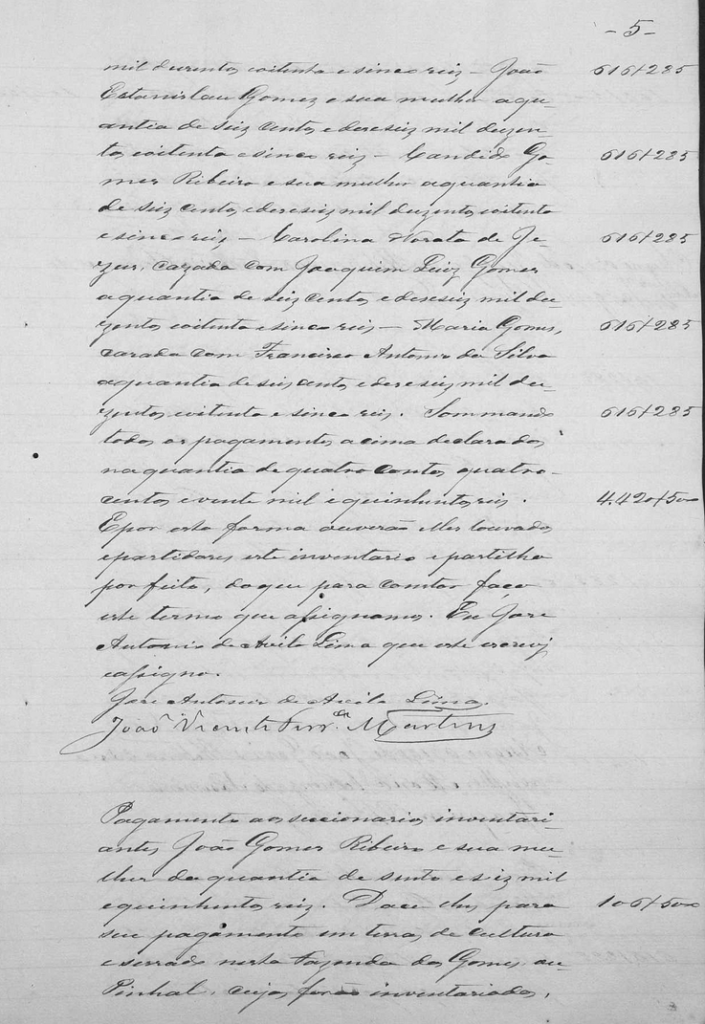 -5-
mil duzentos oitenta e sinco reis – João 616$285
Estanislau Gomez e sua mulher a qu-
antia de seis centos e dezeseis mil duzen-
tos oitenta e sinco reis – Candido Go- 616$285
mes Ribeiro e sua mulher a quantia
de seis centos e dezeseis mil duzentos oitenta
e sinco reis – Carolina Norata de Je- 616$285
zus, cazada com Joaquim Luiz Gomes
a quantia de seis centos e deseseis mil du-
zentos oitenta e sinco reis – Maria Gomes, 616$285
casada com Francisco Antonio da Silva
a quantia de seis centos e dezeseis mil du-
zentos oitenta e sinco reis. Sommando 616$285
todos os pagamentos acima declarados
na quantia de quatro contos quatro-
centos e vente mil e quinhentos reis. 4.420$500
E por esta forma ouverão elles louvados
e partidores este inventario e partilha
por feito, do que para constar faço
este termo que assignamos. Eu José
Antonio de Avila Lima que este escrevi
e assigno.
José Antonio de Avila Lima.
João Vicente Ferr.ª Martins
Pagamento aos seccionarios inventari-
antes João Gomes Ribeiro e sua mu-
lher da quantia de sento e seiz mil
e quinhentos reiz. Dace lhes para 106$500
seu pagamento em terras de cultura
e serrado nesta Fazenda dos Gomes ou
Pinhal, cujas forão inventariados,